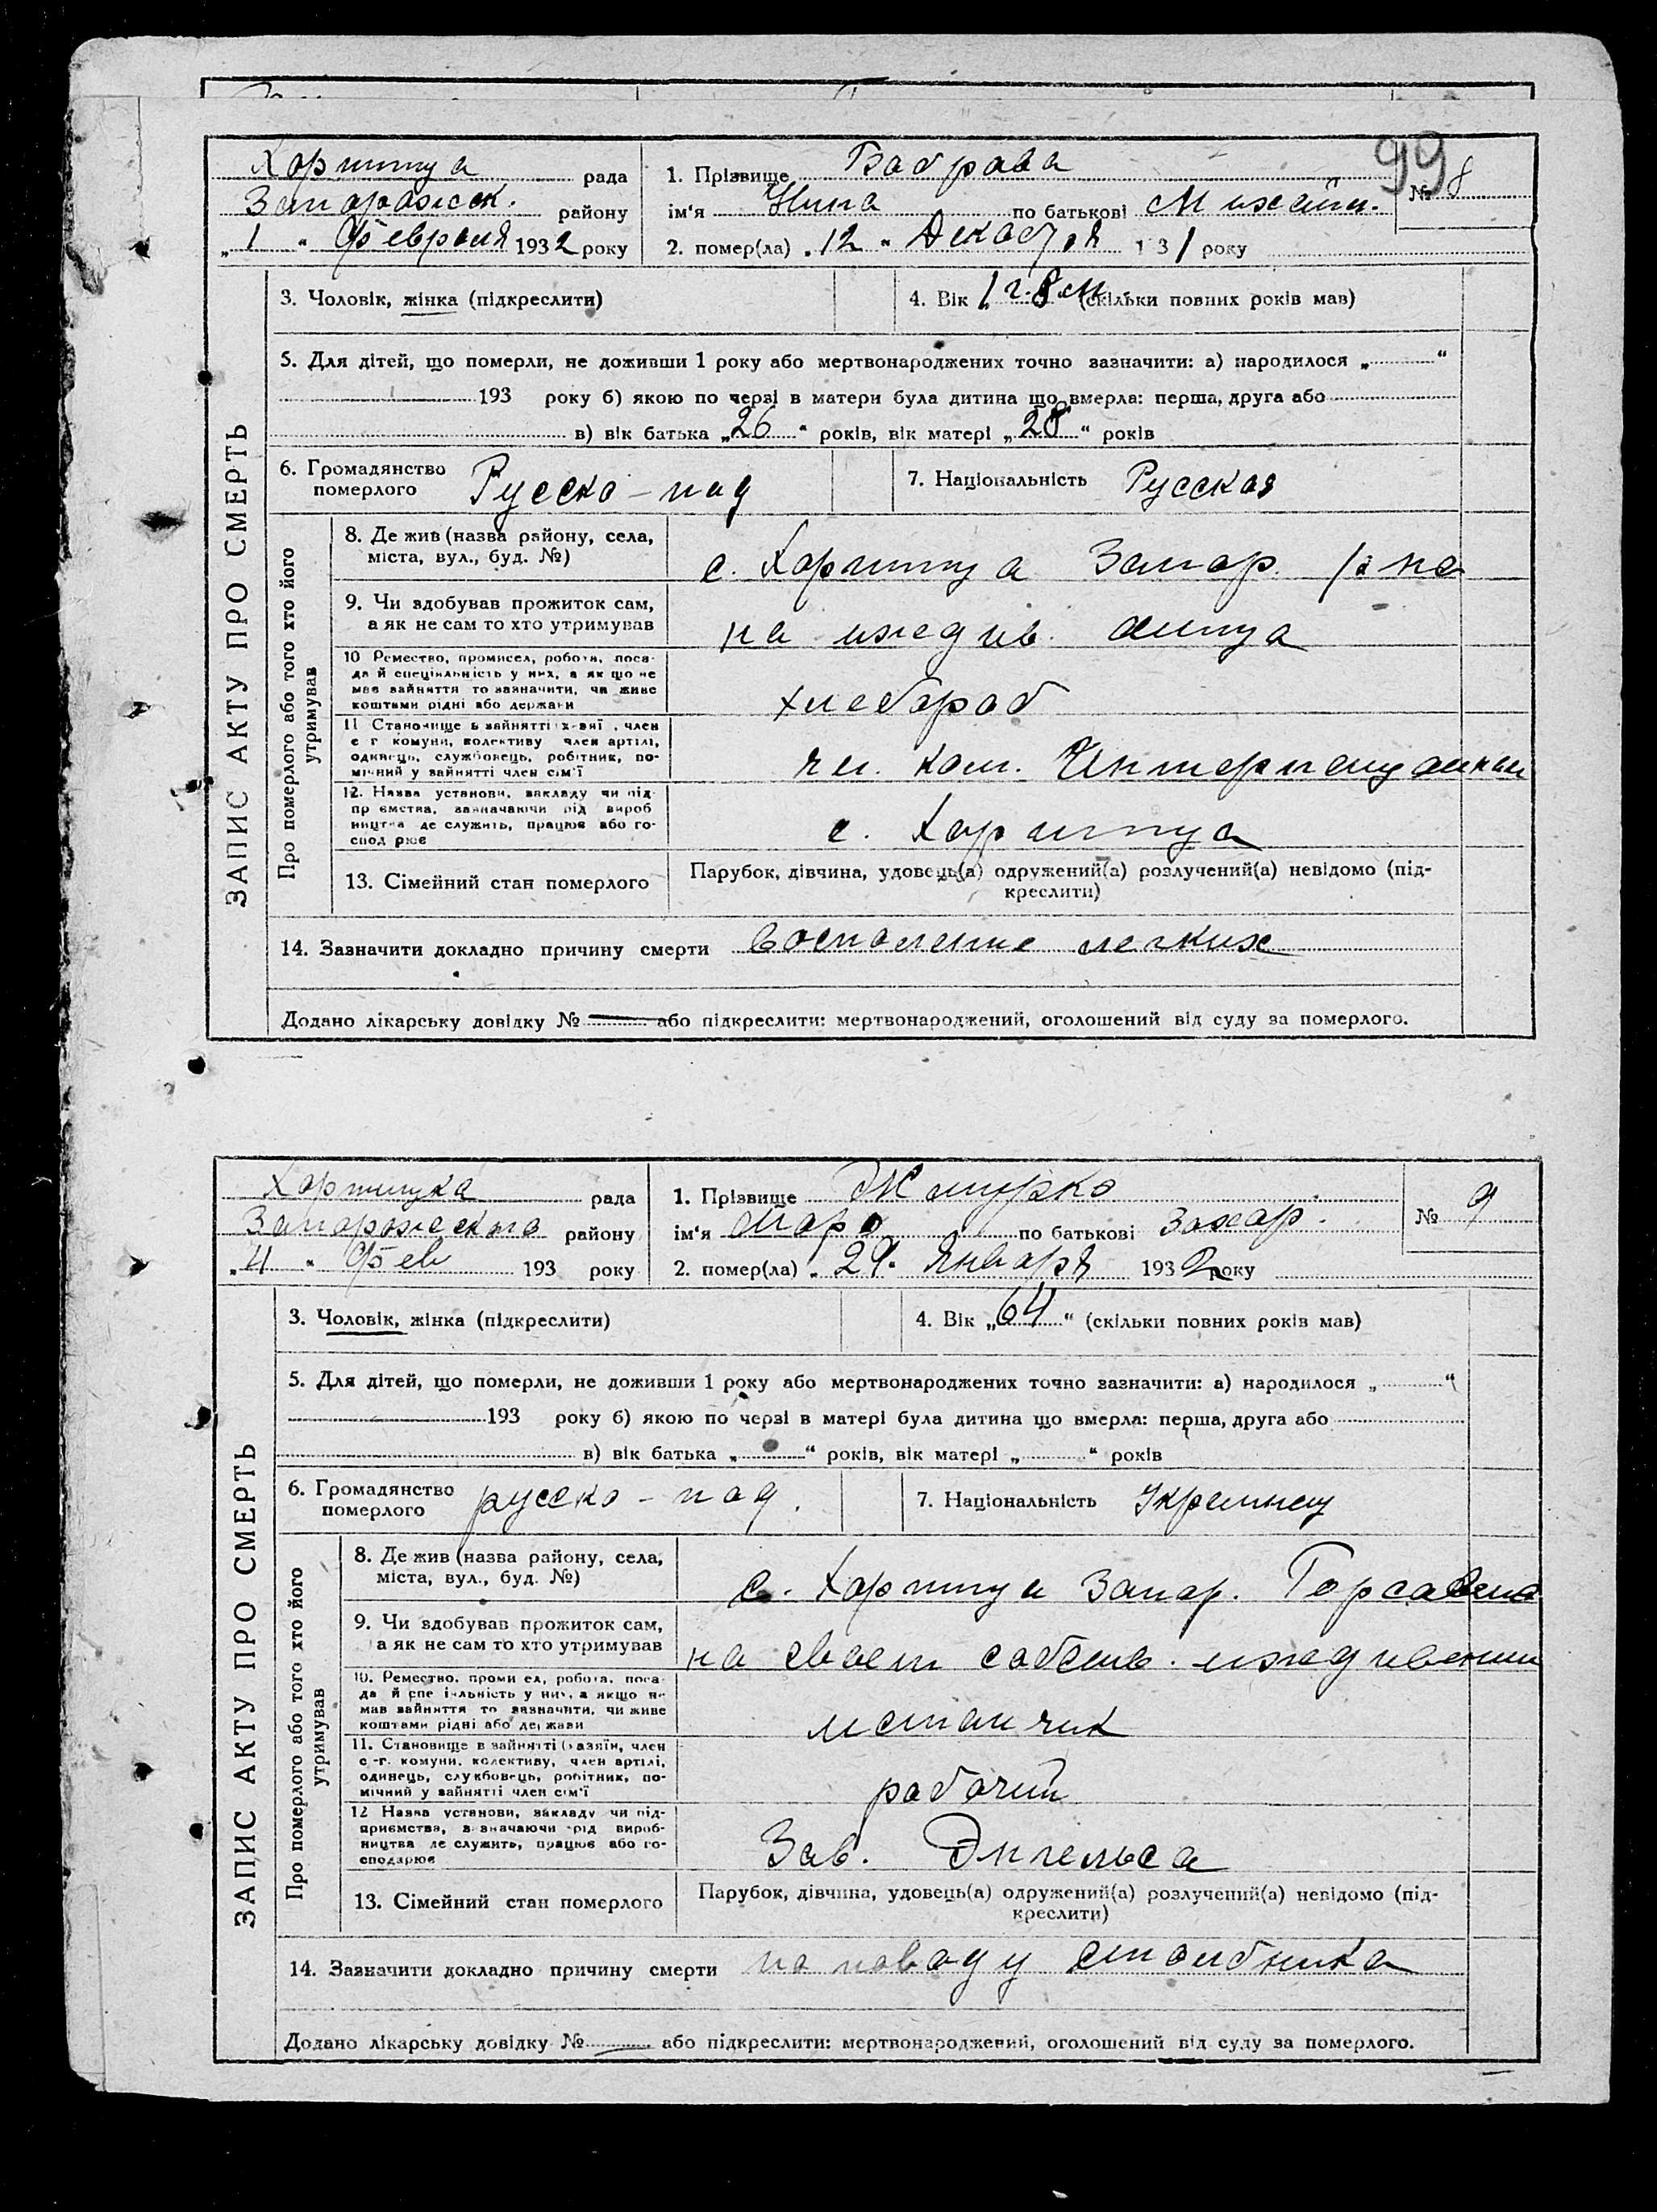 99
Хортица рада
1. Прізвище Бабрава
№ 8
Запорожск. району
ім'я Нина по батькові Михайл.
„1“ Февраля 1932 року
2. помер(ла) „12“ Декабря 131 року
ЗАПИС АКТУ ПРО СМЕРТЬ
3. Чоловік, жінка (підкреслити)
4. Вік „1 г. 8 м. (скільки повних років мав)
5. Для дітей, що померли, не доживши 1 року або мертвонароджених точно зазначити: а) народилося „ “
193 року б) якою по черзі в матери була дитина що вмерла: перша, друга або
в) вік батька „26“ років, вік матері „28“ років
6. Громадянство померлого Русско-под
7. Національність Русская
Про померлого або того хто його утримував
8. Де жив (назва району, села,
міста, вул., буд. №)
с. Хортица Запор. р-на
9. Чи здобував прожиток сам,
а як не сам то хто утримував
на иждив. отца
10 Ремество, промисел, робота, поса-
да й спеціяльність у них, а як що не
мав зайняття то зазначити, чи живе
коштами рідні або держави
хлебороб
11 Становище в зайнятті х-зяї , член
с г комуни, колективу член артілі,
одинець, службовець, робітник, по-
мічний у зайнятті член сім'ї
чл. кол. Интернационал
12. Назва установи, закладу чи під-
пр ємства, зазначаючи рід вироб
ництва де служить, працює або го-
спод рює
с. Хортица
13. Сімейний стан померлого
Парубок, дівчина, удовець(а) одружений(а) розлучений(а) невідомо (під-
креслити)
14. Зазначити докладно причину смерти воспаление легких
Додано лікарську довідку № або підкреслити: мертвонароджений, оголошений від суду за померлого.
Хортицка рада
1. Прізвище Жмурко
№ 9
Запорожского району
ім'я по батькові Захар.
„4“ Фев 193 року
2. помер(ла) „29“ Января 1932 року
ЗАПИС АКТУ ПРО СМЕРТЬ
3. Чоловік, жінка (підкреслити)
4. Вік „64“ (скільки повних років мав)
5. Для дітей, що померли, не доживши 1 року або мертвонароджених точно зазначити: а) народилося „ “
193 року б) якою по черзі в матері була дитина що вмерла: перша, друга або
в) вік батька „ “ років, вік матері „ “ років
6. Громадянство померлого русско-под.
7. Національність Украинец
Про померлого або того хто його утримував
8. Де жив (назва району, села,
міста, вул., буд. №)
с. Хортица Запор. Горсовета
9. Чи здобував прожиток сам,
а як не сам то хто утримував
на своем собств. иждивении
10. Ремество, проми ел, робота, поса-
да й спе іяльність у них, а якщо не
мав зайняття то зазначити, чи живе
коштами рідні або держави
11. Становище в зайнятті (хазяїн, член
с-г. комуни, колективу, член артілі,
одинець, службовець, робітник, по-
мічний у зайнятті член сім'ї
рабочий
12 Назва установи, закладу чи під-
приємства, зазначаючи рід вироб-
ництва де служить, працює або го-
сподарює
Зав. Энгельса
13. Сімейний стан померлого
Парубок, дівчина, удовець(а) одружений(а) розлучений(а) невідомо (під-
креслити)
14. Зазначити докладно причину смерти по поводу столбника
Додано лікарську довідку № або підкреслити: мертвонароджений, оголошений від суду за померлого.